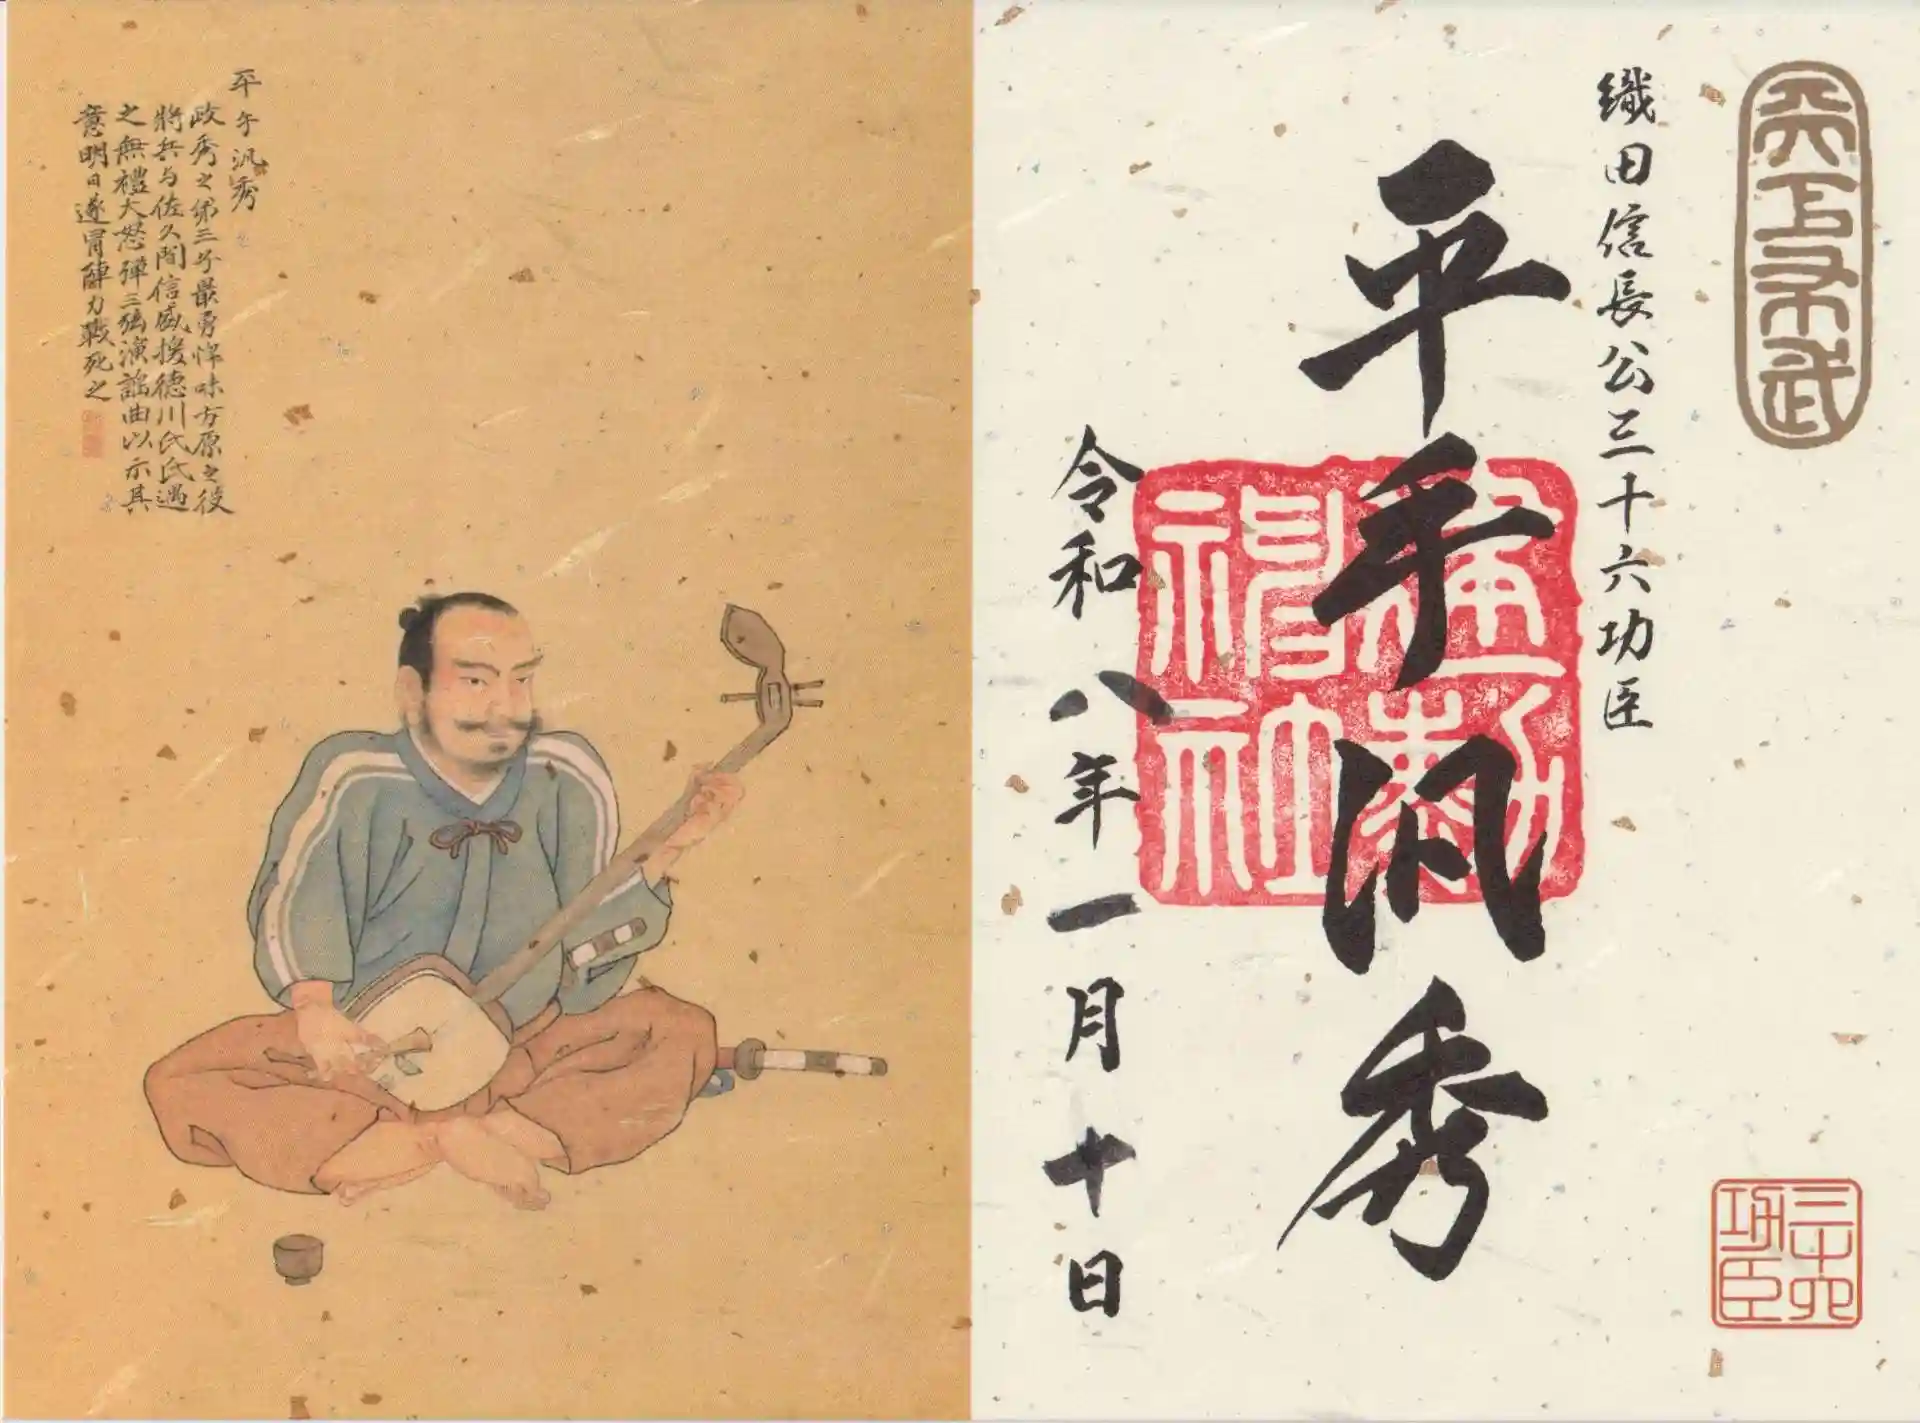 天下布武
織田信長公三十六功臣
平手汎秀
建勲神社
令和八年一月十日
三十六功臣
平手汎秀
政秀之第三子最勇悍味方原之役
將兵与佐久間信盛援德川氏氏遇
之無禮大怒彈三弦演謡曲以示其
意明日遂冒陣力戰死之